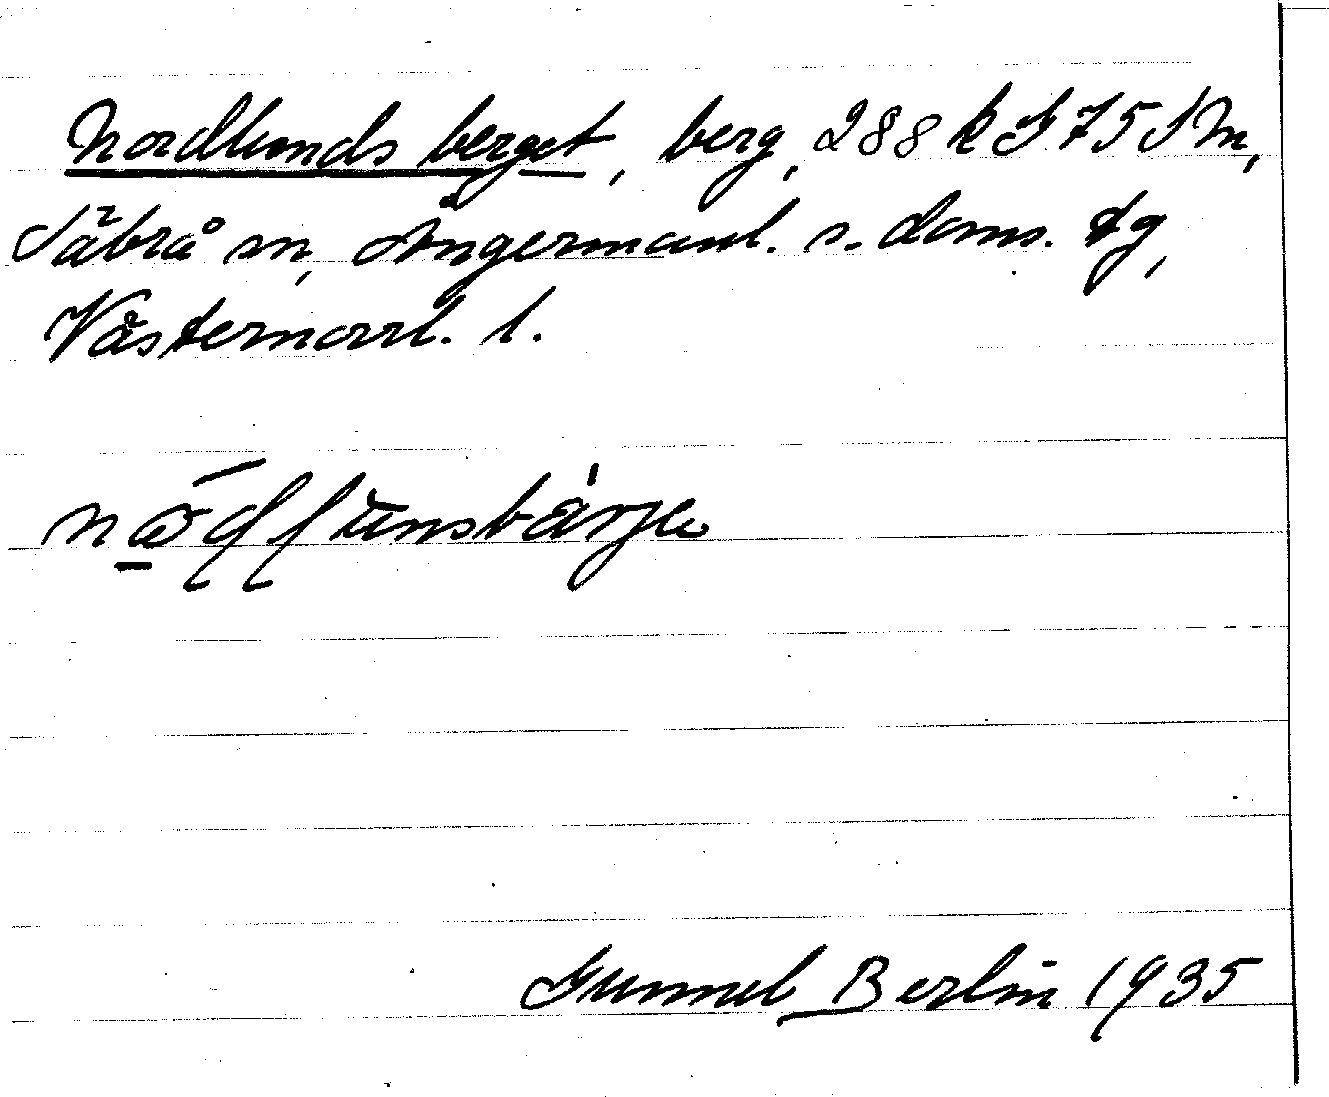 Nordlunds berget, berg, 288 k I 75 I m,
Säbrå sn, Ångermanl. s. doms. tg,
Västernorrl. l.
Gunnel Berlin 1935